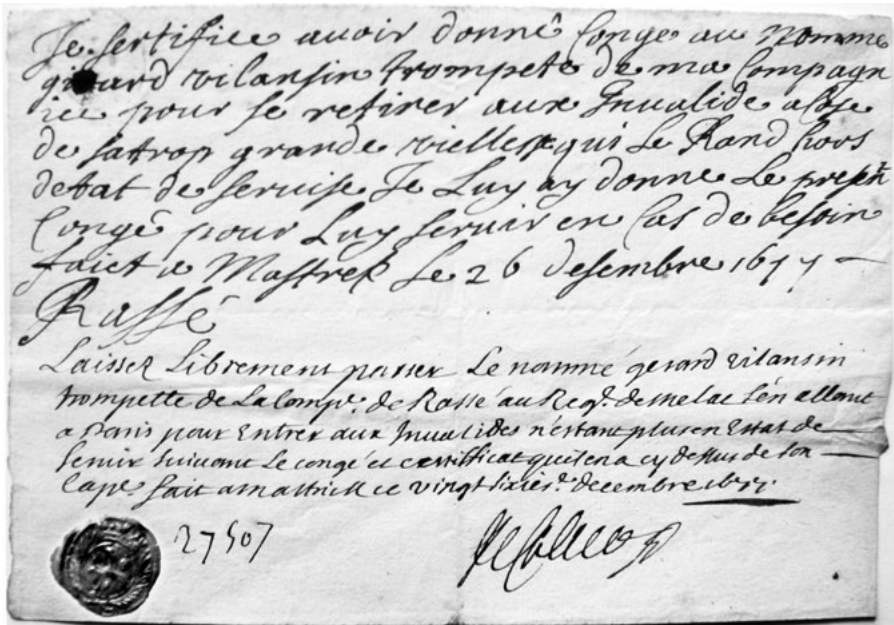 Je sertifice auoir donné Congé au nomme
girard vilansin trompete de ma Compagn
iee pour se retirer aux Inualide acose
de satrop grande viellesse qui Le Rand hors
detat de seruise Je Luy ay donne Le presĕt
Congé pour Luy seruir en Cas de besoin
faict a Mastrek Le 26 desembre 1677
Rassé
Laissez Librement passer Le nommé gerard vilansin
trompette de La Compe. de Rassé au Regt. de melac s'en allant
a Paris pour Entrer aux Inualides n'estant plus en Estat de
seruir suiuant Le congé et certifficat quil en a cy dessus de son
Capne. fait a mastrick ce vingt sixies.e decembre 1677.
27507